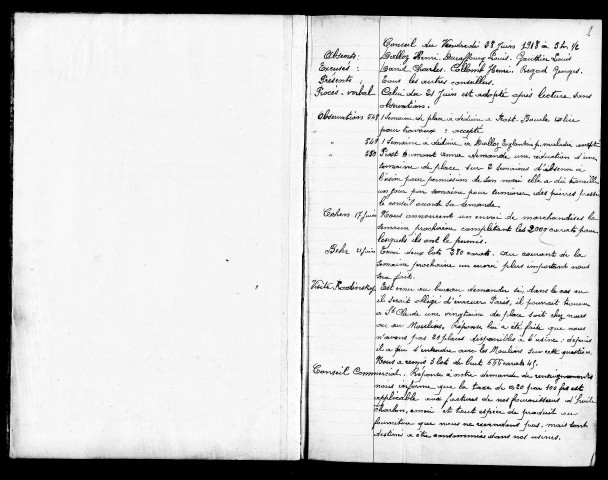 1
Conseil du Vendredi 28 Juin 1918 à 5 h. 1/2
Absents: Dalloz Henri, Duraffourg Louis, Gauthier Louis
Excusés: David Charles, Collomb Henri, Regad Georges.
Présents: Tous les autres conseillers.
Procès-verbal Celui du 21 Juin est adopté après lecture sans
observations.
Observations 548 1 Semaine de place à déduire à
pour travaux: accepté
" 549 1 Semaine à déduire à Dalloz p. maladie accepté
" 550 Dumont Anna demande une réduction d'une
semaine de place sur 2 Semaines d'absence à
l'usine pour permission de son mari elle a dû travailler
un jour par semaine pour terminer des pierres pressées
le conseil accorde sa demande.
Cohen 17 Juin Nous annoncent un envoi de marchandises la
semaine prochaine complétant les 2000 carats pour
lesquels ils ont le permis.
Behr 21 Juin Envoi deux lots 380 carats. Au courant de la
Semaine prochaine un envoi plus important nous
sera fait.
Visite Est venu au bureau demander si, dans le cas où
il serait obligé d'évacuer Paris, il pourrait trouver
à St Claude une vingtaine de place soit chez nous
ou au Moulins, Réponse lui a été faite que nous
n'avons pas 20 places disponibles à l'usine; depuis
il a pu s'entendre avec les Moulins sur cette question.
Nous a remis 3 lots de brut 555 carats 45.
Conseil Commercial. Réponse à notre demande de renseignements
nous informe que la taxe de 0,20 par 100 frs est
applicable aux factures de nos fournisseurs d'huile
charbon, émeri et toute espèce de produit ou
fourniture que nous ne revendons pas, mais sont
destiné à être consommées dans nos usines.